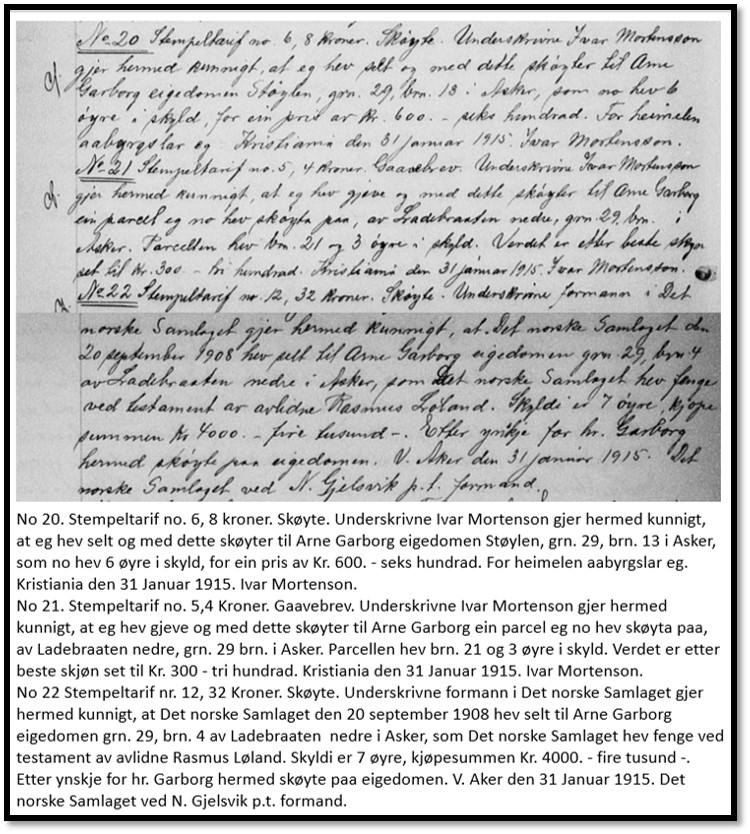 No 20 Stempeltarif no. 6, 8 kroner. Skøyte. Underskrivne Ivar Mortensson
gjer hermed kunnigt, at eg hev selt og med dette skøyter til Arne
Garborg eigedomen Støylen, grn. 29, brn. 13 i Asker, som no hev 6
øyre i skyld, for ein pris av Kr. 600. - seks hundrad. For heimelen
aabyrgslar eg Kristiania den 31 januar 1915. Ivar Mortensson.
No 21 Stempeltarif no. 5, 4 kroner. Gaavebrev. Underskrivne Ivar Mortensson
gjer hermed kunnigt, at eg hev gjeve og med dette skøyter til Arne Garborg
ein parcel eg no hev skøyta paa, av Ladebraaten nedre, grn. 29, brn. i
Asker. Parcellen hev brn. 21 og 3 øyre i skyld. Verdet er etter beste skjøn
set til Kr. 300 - tri hundrad. Kristiania den 31 januar 1915. Ivar Mortensson.
No 22 Stempeltarif no. 12, 32 kroner. Skøyte. Underskrivne formann i Det
norske Samlaget gjer hermed kunnigt, at Det norske Samlaget den
20 september 1908 hev selt til Arne Garborg eigedomen grn. 29, brn. 4
av Ladebraaten nedre i Asker, som Det norske Samlaget hev fenge
ved testament av avlidne Rasmus Løland. Skyldi er 7 øyre, kjøpe
summen Kr 4000. - fire tusund -. Etter ynskje for hr. Garborg
hermed skøyte paa eigedomen. V. Aker den 31 januar 1915. Det
norske Samlaget ved N. Gjelsvik p.t. formand.
No 20. Stempeltarif no. 6, 8 kroner. Skøyte. Underskrivne Ivar Mortenson gjer hermed kunnigt,
at eg hev selt og med dette skøyter til Arne Garborg eigedomen Støylen, grn. 29, brn. 13 i Asker,
som no hev 6 øyre i skyld, for ein pris av Kr. 600. - seks hundrad. For heimelen aabyrgslar eg.
Kristiania den 31 Januar 1915. Ivar Mortenson.
No 21. Stempeltarif no. 5,4 Kroner. Gaavebrev. Underskrivne Ivar Mortenson gjer hermed
kunnigt, at eg hev gjeve og med dette skøyter til Arne Garborg ein parcel eg no hev skøyta paa,
av Ladebraaten nedre, grn. 29 brn. i Asker. Parcellen hev brn. 21 og 3 øyre i skyld. Verdet er etter
beste skjøn set til Kr. 300 - tri hundrad. Kristiania den 31 Januar 1915. Ivar Mortenson.
No 22 Stempeltarif nr. 12, 32 Kroner. Skøyte. Underskrivne formann i Det norske Samlaget gjer
hermed kunnigt, at Det norske Samlaget den 20 september 1908 hev selt til Arne Garborg
eigedomen grn. 29, brn. 4 av Ladebraaten nedre i Asker, som Det norske Samlaget hev fenge ved
testament av avlidne Rasmus Løland. Skyldi er 7 øyre, kjøpesummen Kr. 4000. - fire tusund -.
Etter ynskje for hr. Garborg hermed skøyte paa eigedomen. V. Aker den 31 Januar 1915. Det
norske Samlaget ved N. Gjelsvik p.t. formand.